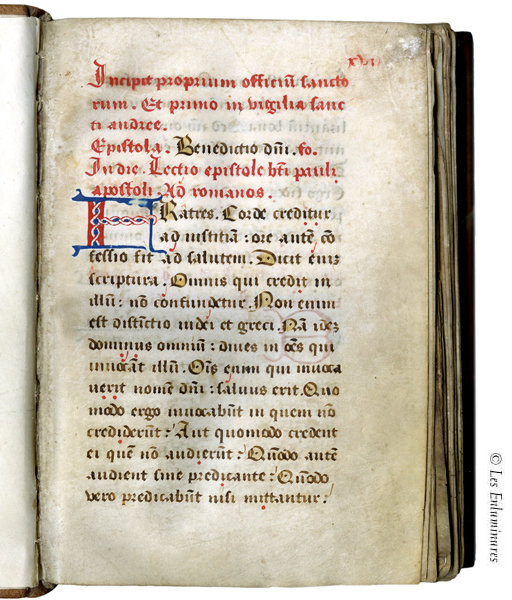 xvi
Incipit proprium officiū sancto
rum. Et primo in vigilia sanc
ti andree.
Epistola. Benedictio dñi. fo.
In die. Lectio epistole bti pauli
apostoli. Ad romanos.
FRatres. Corde creditur
ad iustitiā: ore autē cō
fessio fit ad salutem. Dicit enim
scriptura. Omnis qui credit in
illū: nō confundetur. Non enim
est distinctio iudei et greci. Nā idez
dominus omniū: diues in oēs qui
inuocāt illū. Oīs enim qui inuoca
uerit nomē dñi: saluus erit. Quo
modo ergo inuocabūt in quem nō
crediderūt: Aut quomodo credent
ei quē nō audierūt: Quōdo autē
audient sine predicante: Quōdo
vero predicabūt nisi mittantur:
© Les Enluminures